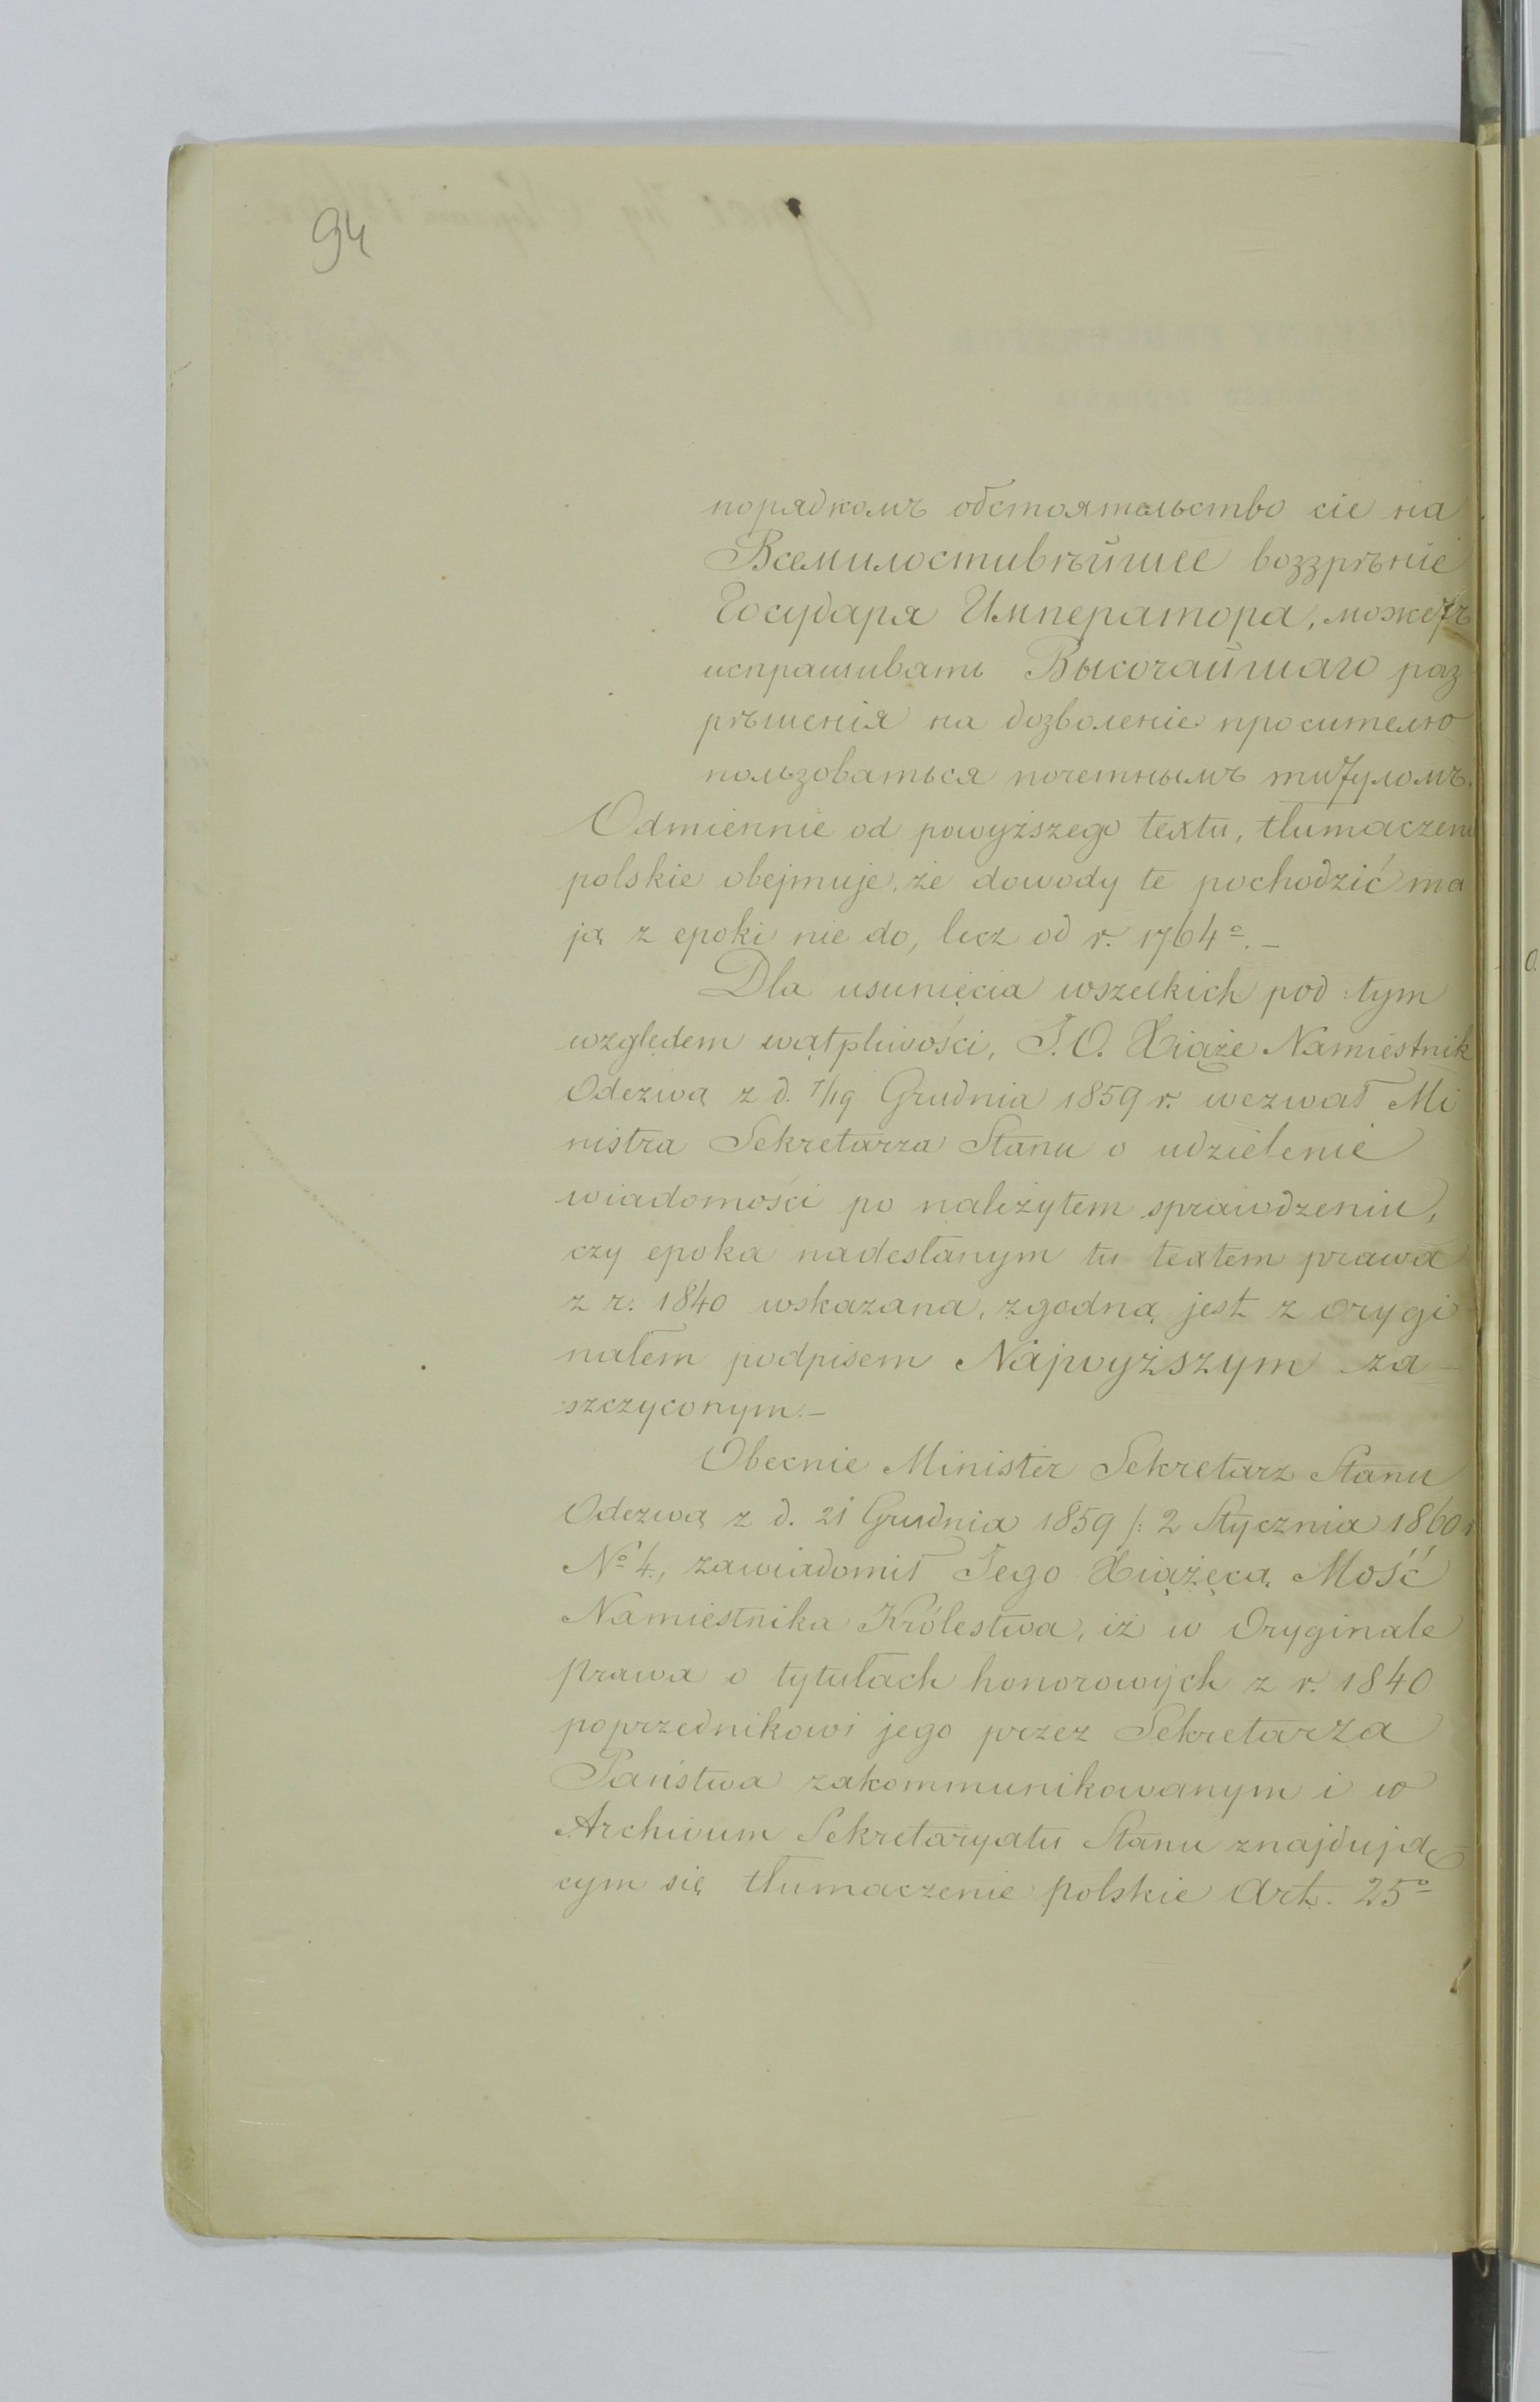 94
порядкомъ обстоятельство сіе на
Всемилостивѣйшее воззрѣніе
Государя Императора, можетъ
испрашивать Высочайшаго раз
рѣшенія на дозволеніе просителю
пользоваться почетнымъ титуломъ.
Odmiennie od powyższego textu, tłumaczeni
polskie obejmuje, że dowody te pochodzić ma
ją z epoki nie do, lecz od r. 1764º.–
Dla usunięcia wszelkich pod tym
względem wątpliwości, J.O. Xiąże Namiestnik
Odezwą z d. 7/19 Grudnia 1859 r. wezwał Mi
nistra Sekretarza Stanu o udzielenie
wiadomości po należytem sprawdzeniu,
czy epoka nadesłanym tu textem prawa
z r. 1840 wskazana, zgodną jest z orygi
nałem podpisem Najwyższym za–
szczyconym.–
Obecnie Minister Sekretarz Stanu
Odezwą z d. 21 Grudnia 1859 /: 2 Stycznia 1860 r
Nº 4., zawiadomił Jego Xiążęcą Mość
Namiestnika Królestwa, iż w Oryginale
prawa o tytułach honorowych z r. 1840
poprzednikowi jego przez Sekretarza
Państwa zakommunikowanym i w
Archivum Sekretaryatu Stanu znajdują
cym się tłumaczenie polskie Art. 25º